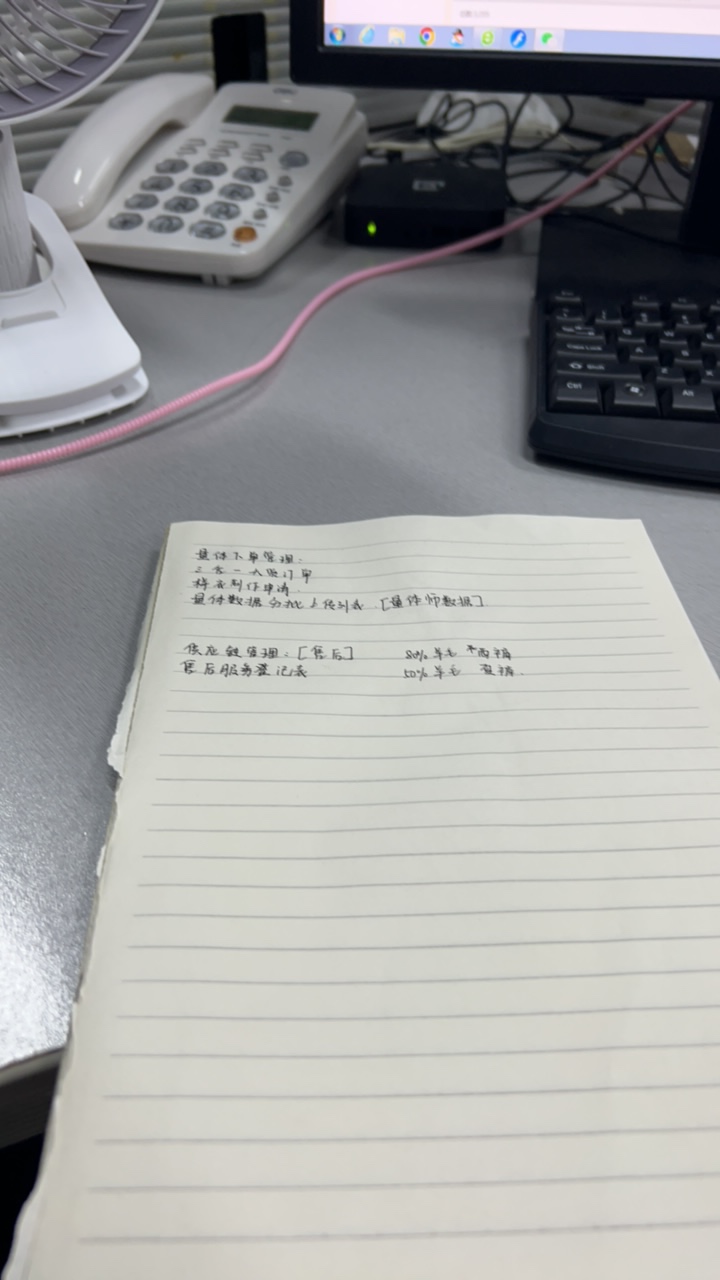 量体下单管理:
三合一大货订单
样衣制作申请
量体数据分批上传列表 [量体师数据]
供应链管理: [售后] 80% 羊毛 *西裤
售后服务登记表 50% 羊毛 裤
Ctrl
Shift
Alt